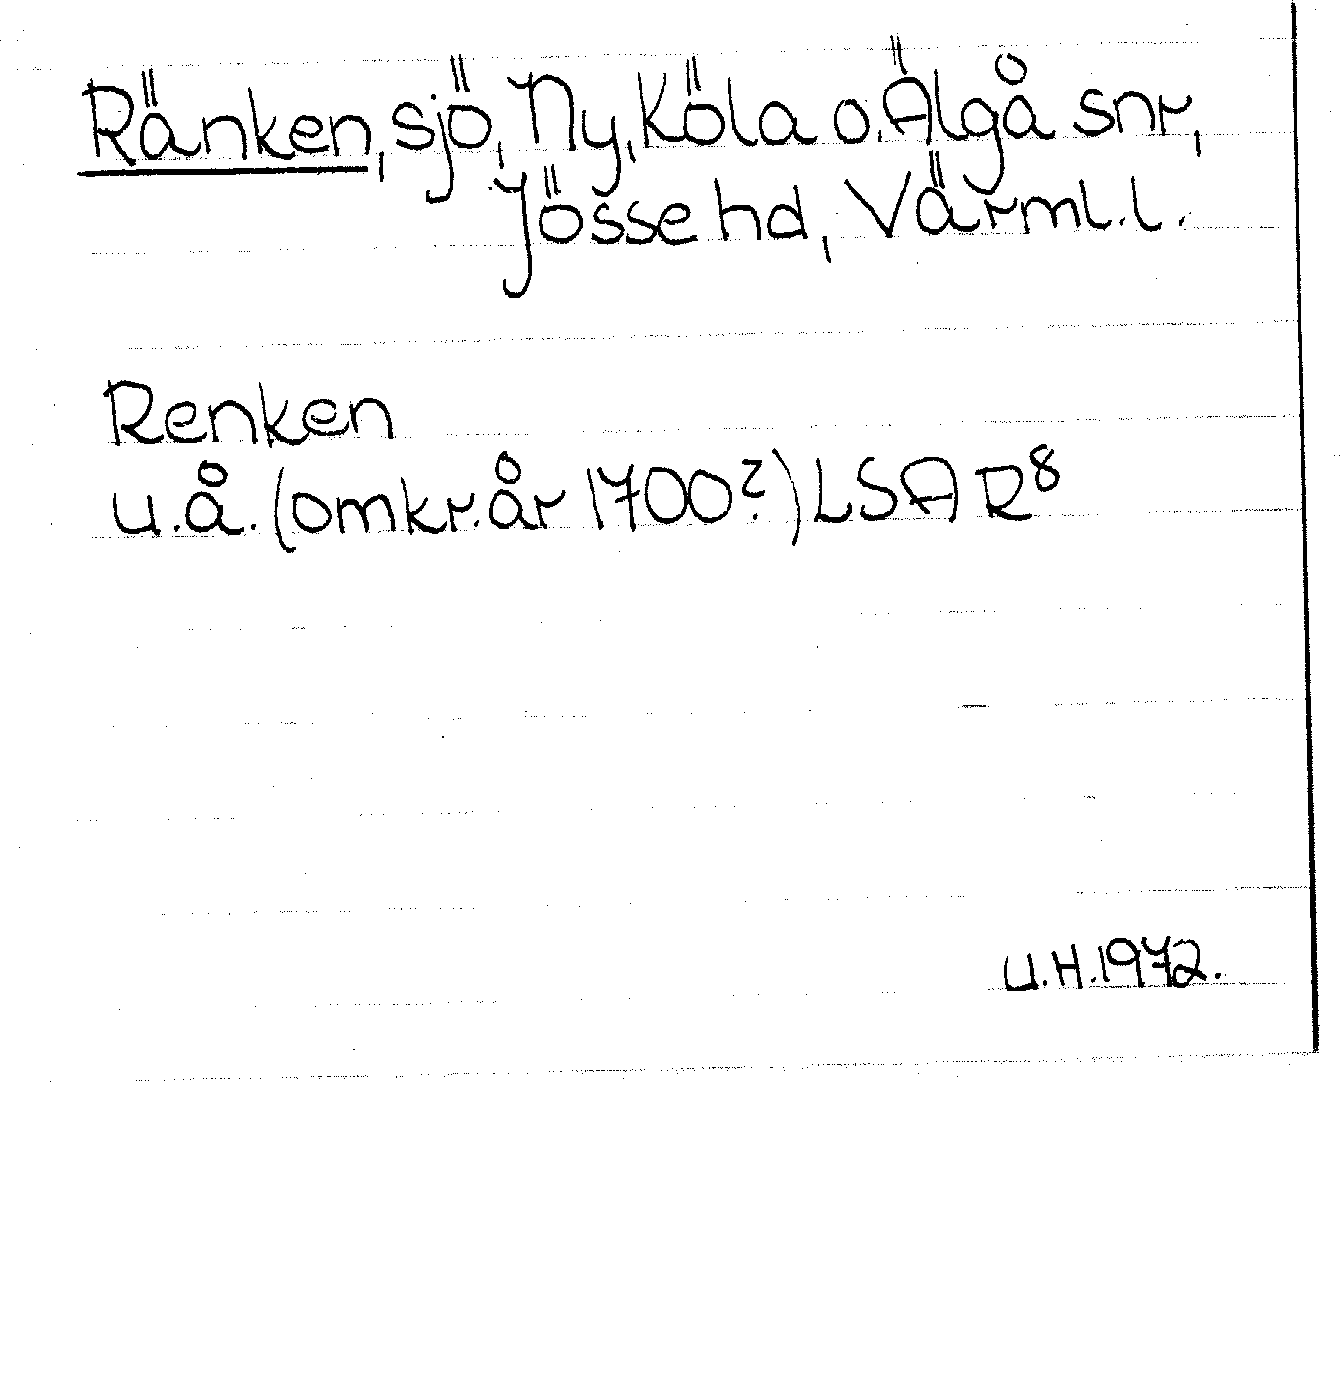 Ränken, sjö, Ny, Köla o. Älgå snr,
Jösse hd, Värml. l.
Renken
u.å. (omkr. år 1700?) LSA R⁸
U.H. 1972.